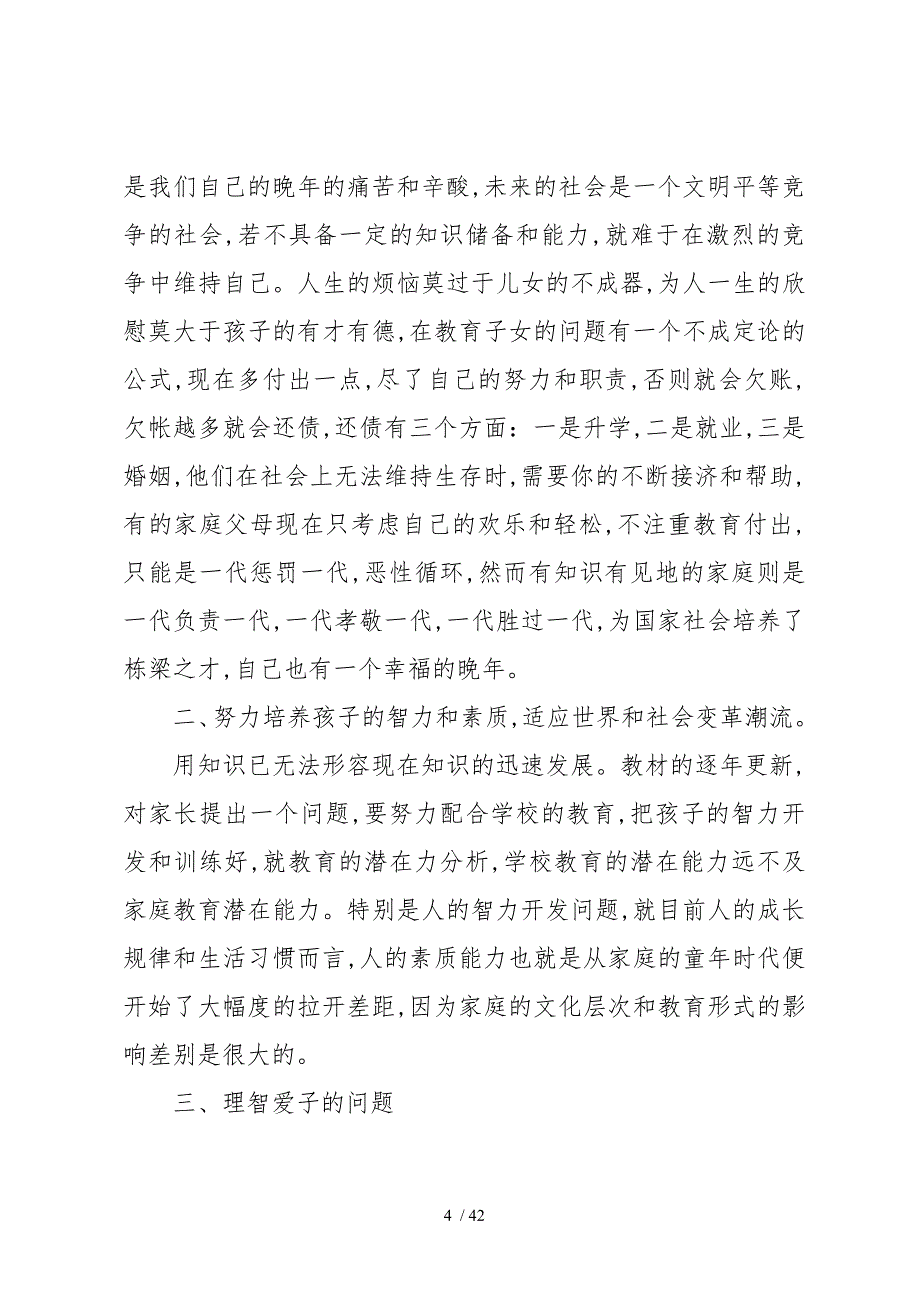 是我们自己的晚年的痛苦和辛酸,未来的社会是一个文明平等竞
争的社会,若不具备一定的知识储备和能力,就难于在激烈的竞
争中维持自己。人生的烦恼莫过于儿女的不成器,为人一生的欣
慰莫大于孩子的有才有德,在教育子女的问题有一个不成定论的
公式,现在多付出一点,尽了自己的努力和职责,否则就会欠账,
欠帐越多就会还债,还债有三个方面：一是升学,二是就业,三是
婚姻,他们在社会上无法维持生存时,需要你的不断接济和帮助,
有的家庭父母现在只考虑自己的欢乐和轻松,不注重教育付出,
只能是一代惩罚一代,恶性循环,然而有知识有见地的家庭则是
一代负责一代,一代孝敬一代,一代胜过一代,为国家社会培养了
栋梁之才,自己也有一个幸福的晚年。
二、努力培养孩子的智力和素质,适应世界和社会变革潮流。
用知识已无法形容现在知识的迅速发展。教材的逐年更新,
对家长提出一个问题,要努力配合学校的教育,把孩子的智力开
发和训练好,就教育的潜在力分析,学校教育的潜在能力远不及
家庭教育潜在能力。特别是人的智力开发问题,就目前人的成长
规律和生活习惯而言,人的素质能力也就是从家庭的童年时代便
开始了大幅度的拉开差距,因为家庭的文化层次和教育形式的影
响差别是很大的。
三、理智爱子的问题
4 / 42